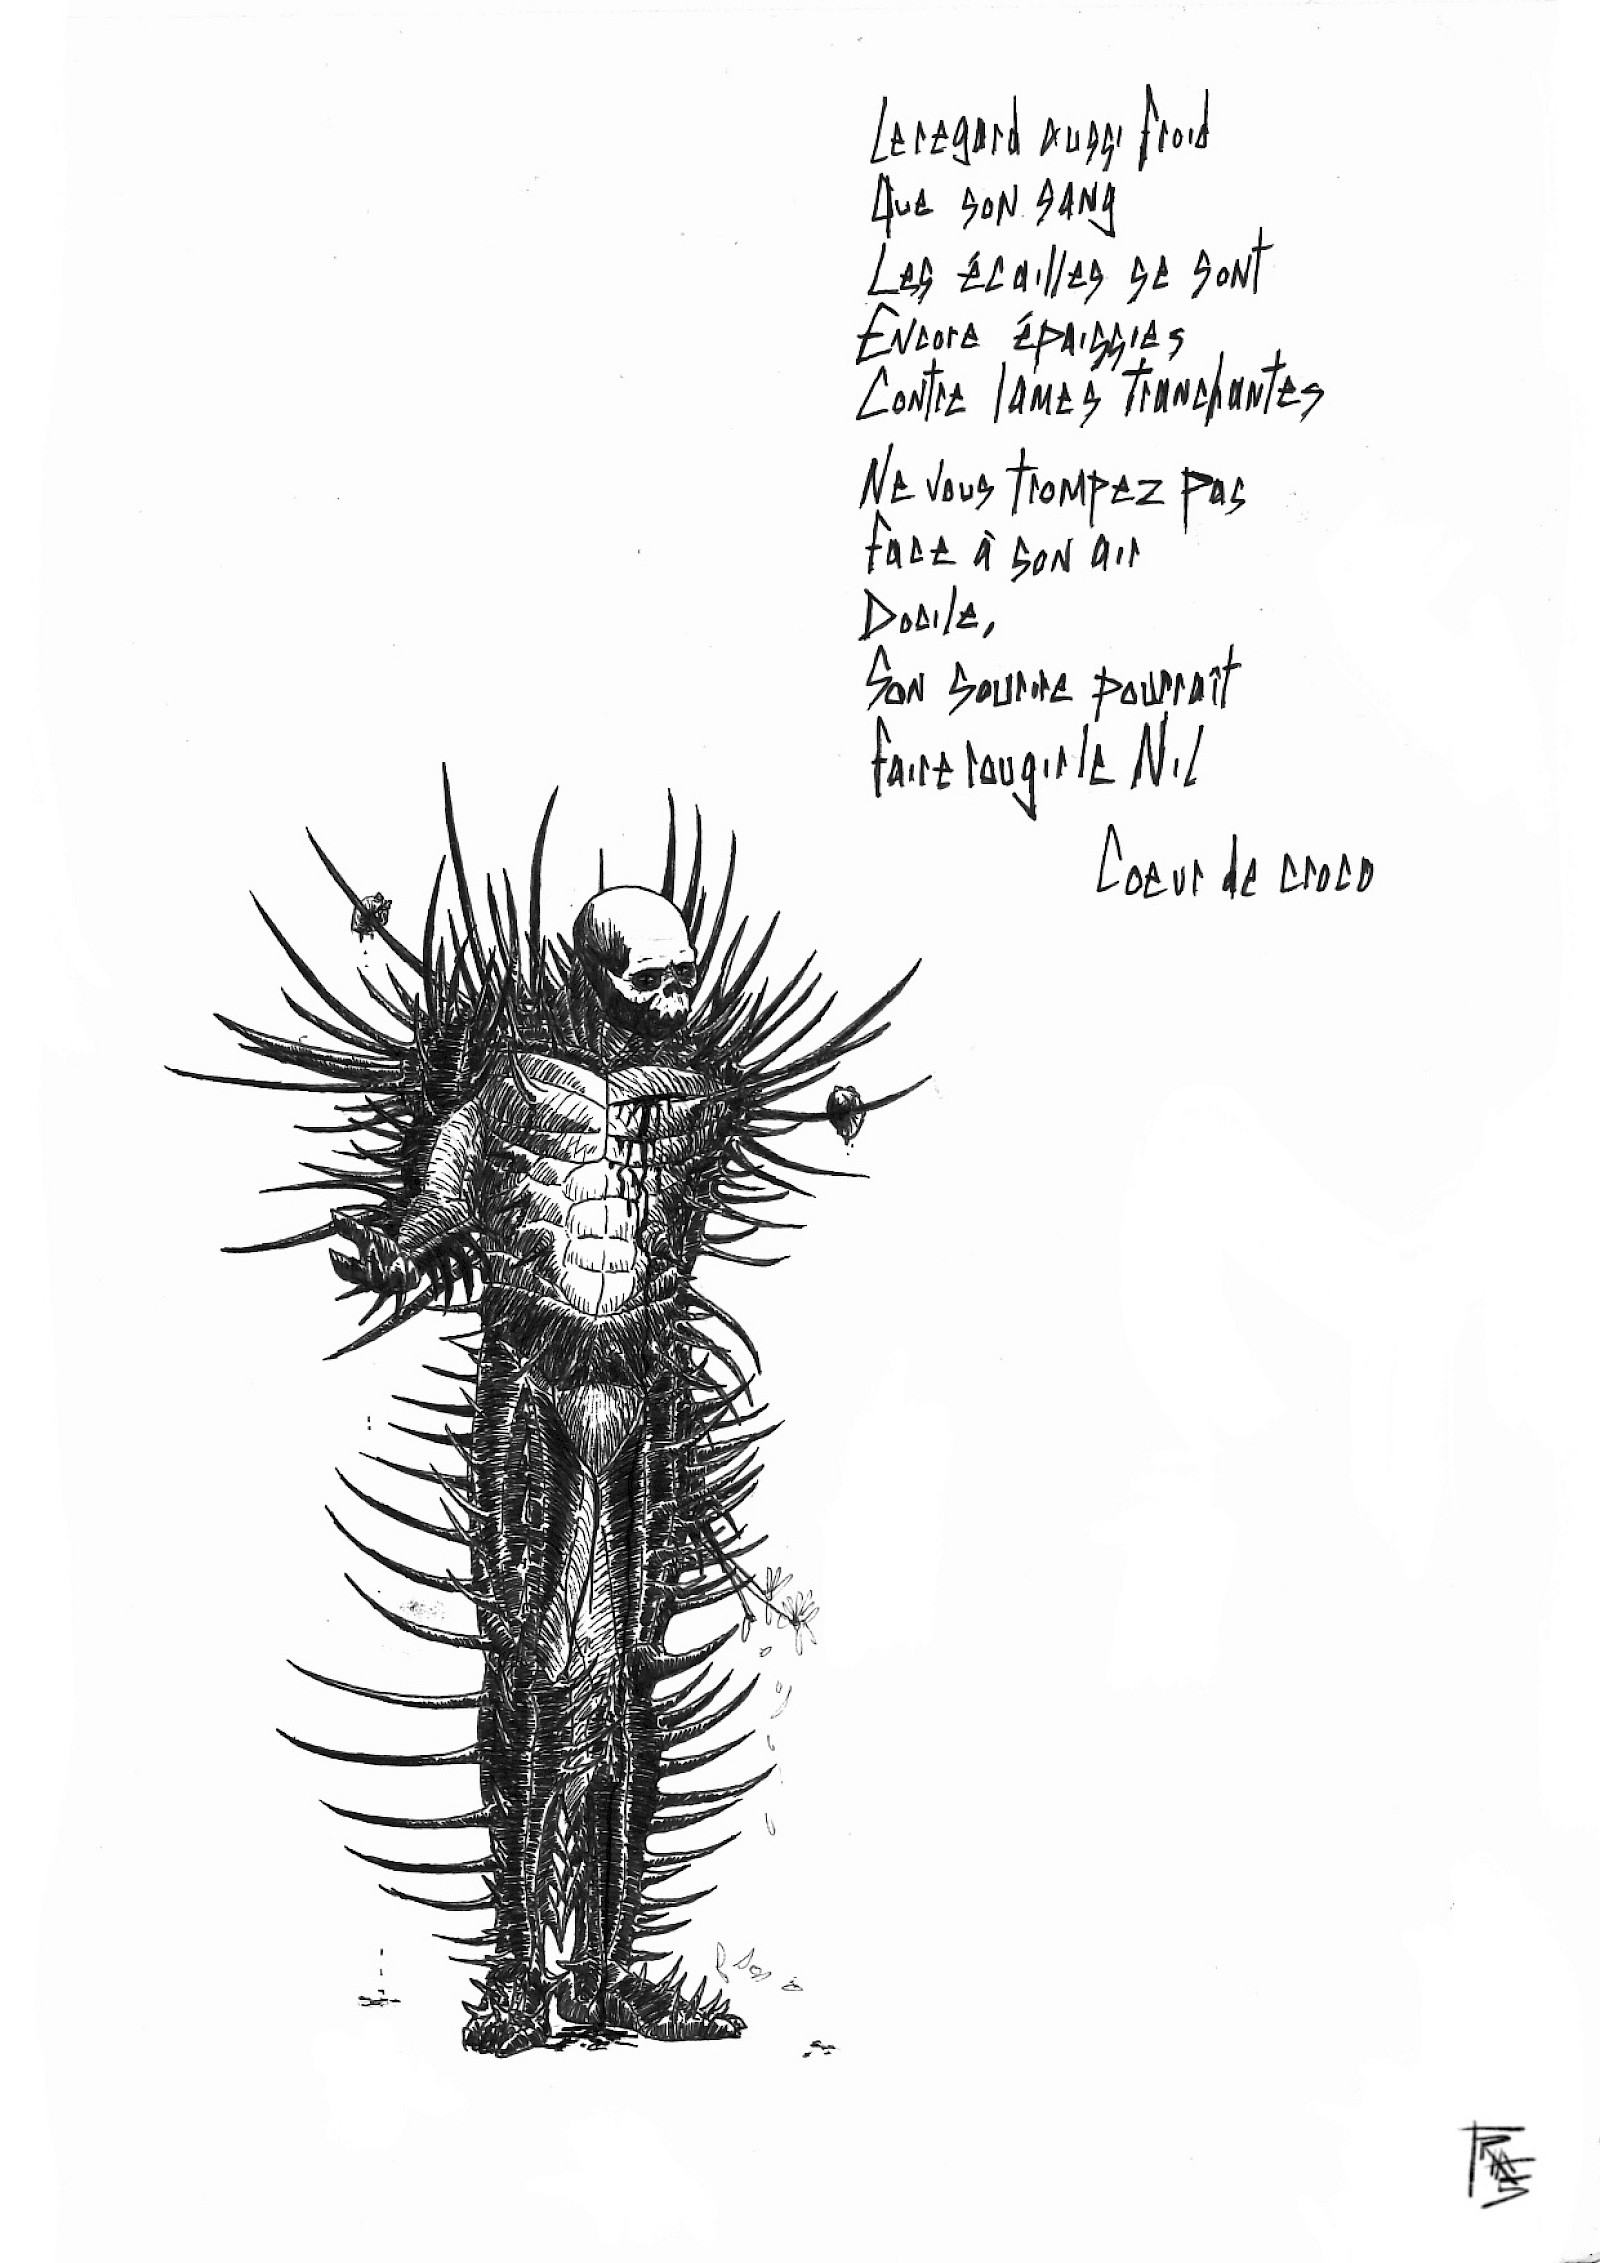 Le regard aussi froid
Que son sang
Les écailles se sont
Encore épaissies
Contre lames tranchantes
Ne vous trompez pas
face à son air
Docile,
Son sourire pourraît
faire rougir le Nil
Coeur de croco